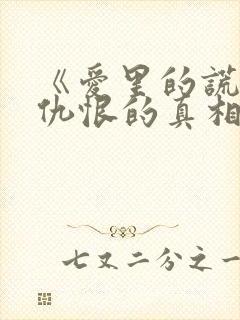 《爱里的謊
仇恨的真相
七又二分之一